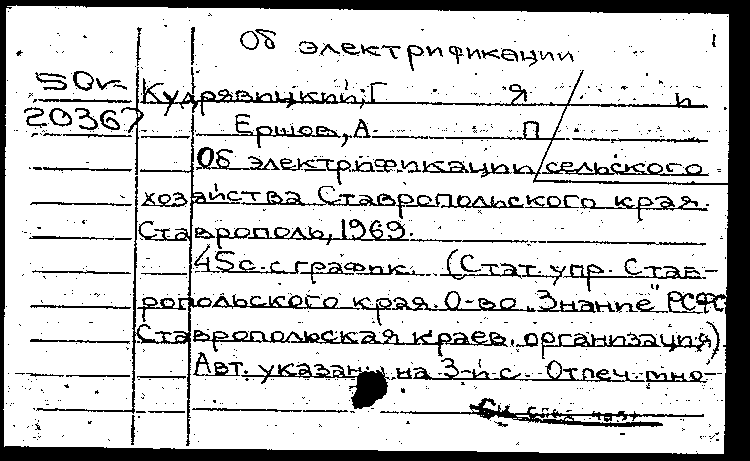 Об электрификации
50к Кудрявицкий, Г Я и
20367 Ершов, А П
Об электрификации сельского
хозяйства Ставропольского края.
Ставрополь, 1969.
45с. с график. (Стат. упр. Став-
ропольского края. О-во „Знание" РСФС
Ставропольская краев. организация)
Авт. указаны на 3-й с. Отпеч. мно-